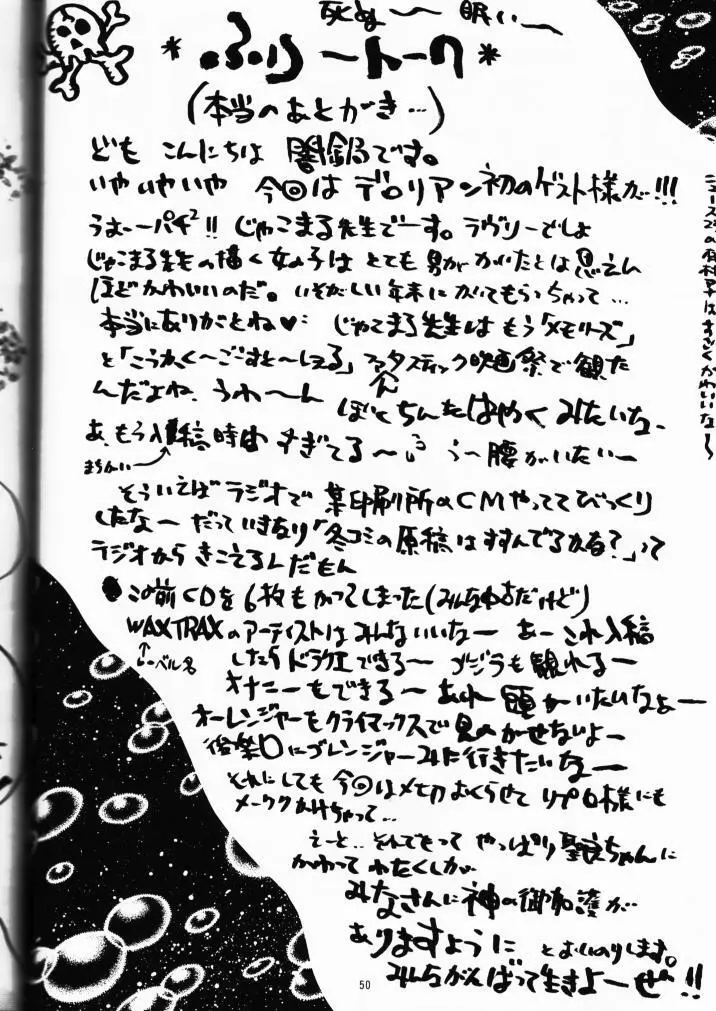 死ぬ〜 眠い〜
*ふりーとーく*
(本当のあとがき…)
ども こんにちは 闇鍋です。
いやいやいや 今回は デロリアン初のゲスト様が!!!
うぉーーパチ²!! じゃこまる先生でーす。ラヴリーでしょ
じゃこまる先生の描く女の子は とても男がかいたとは思えん
ほどかわいいのだ。いそがしい年末にかいてもらっちゃって…
本当にありがとね♥ じゃこまる先生はもう「メモリーズ」
と「こうかく〜ごーすと〜しぇる」ファンタスティック映画祭で観た
んだよね、うわ〜ん ぼくちんもはやく みたいな〜
あ、もう入稿時間 すぎてる〜 う〜腰がいたい〜
まちがい
そういえばラジオで 某印刷所のCMやっててびっくり
したな〜 だっていきなり「冬コミの原稿はすすんでるかな?」って
ラジオからきこえるんだもん
この前CDを6枚もかってしまった(みんな中古だけど)
WAXTRAXのアーティストはみんないいな〜 あ〜これ入稿
↑レーベル名 したらドラクエできる〜 ゴジラも観れる〜
オナニーもできる〜 あれ 頭がいたいなぁ〜
オーレンジャーもクライマックスで見のがせないよ〜
後楽園にゴレンジャーみに行きたいな〜
それにしても今回はメチャおくらせて リプロ様にも
メーワクかけちゃって…
えーと…そんでもって やっぱり聖良ちゃんに
かわって わたくしが
みなさんに神の御加護が
ありますように とおいのりします。
みんながんばって生きよーぜ!!
50
ニュース23の はすごくかわいいな〜